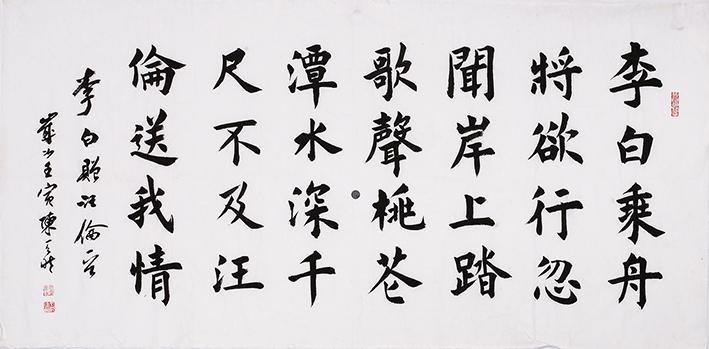 李白乘舟
將欲行忽
聞岸上踏
歌聲桃花
潭水深千
尺不及汪
倫送我情
李白贈汪倫
歲次壬寅陳